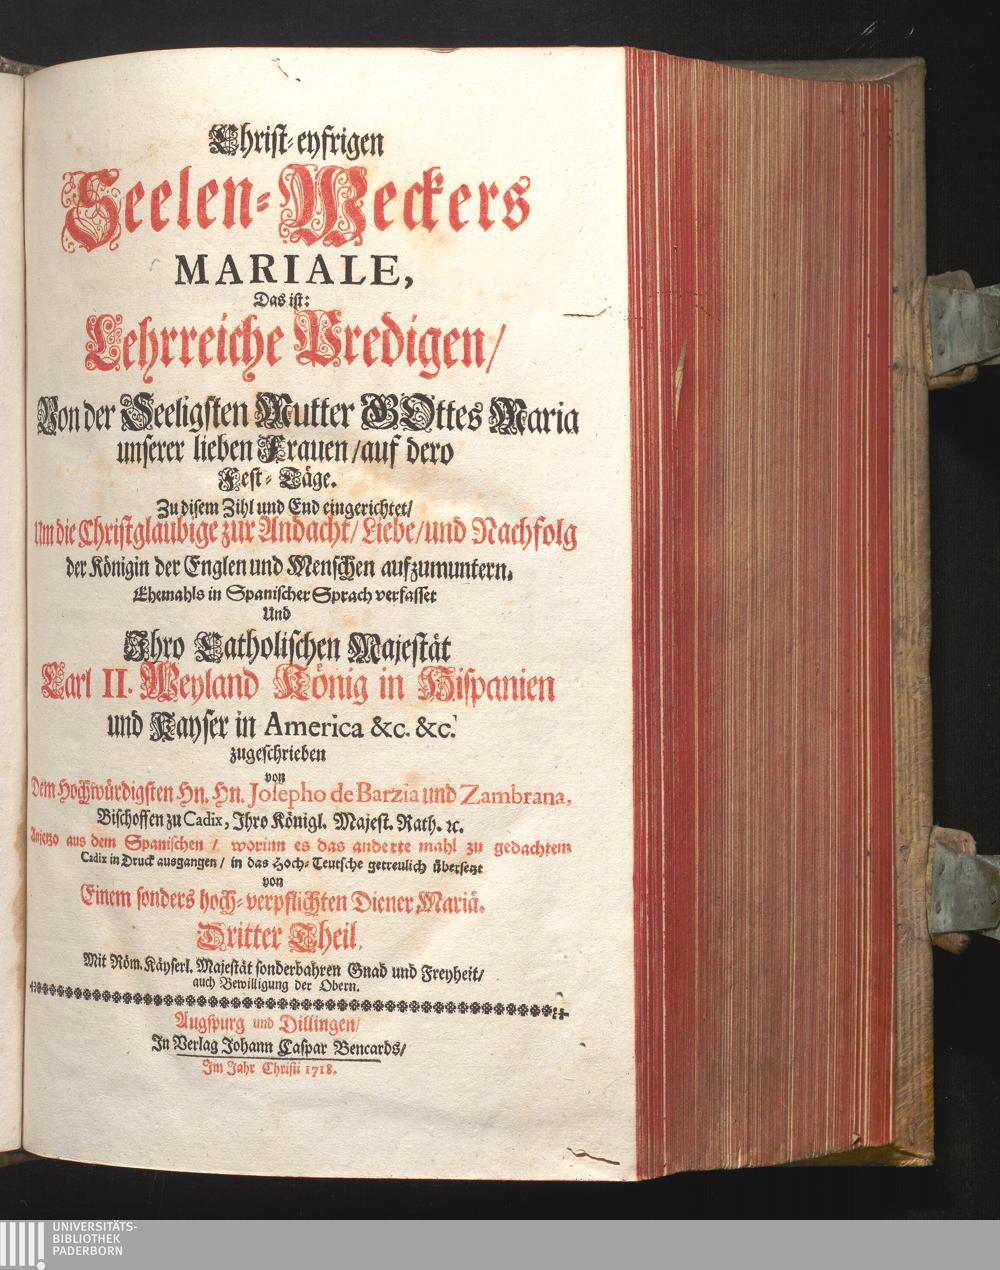 Christ-eyfrigen
Seelen-Weckers
MARIALE,
Das ist:
Lehrreiche Predigen/
Von der Seeligsten Mutter GOttes Maria
unserer lieben Frauen/auf dero
Fest-Täge.
Zu disem Zihl und End eingerichtet/
Um die Christglaubige zur Andacht/Liebe/und Nachfolg
der Königin der Englen und Menschen aufzumuntern.
Ehemahls in Spanischer Sprach verfasset
Und
Ihro Catholischen Majestät
Carl II. Weyland König in Hispanien
und Kayser in America &c. &c.
zugeschrieben
von
Dem Hochwürdigsten Hn. Hn. Josepho de Barzia und Zambrana,
Bischoffen zu Cadix, Ihro Königl. Majest. Rath. ꝛc.
Anjetzo aus dem Spanischen / worinn es das anderte mahl zu gedachtem
Cadix in Druck ausgangen / in das Hoch-Teutsche getreulich übersetzt
von
Einem sonders hoch-verpflichten Diener Mariä.
Dritter Theil.
Mit Röm. Käyserl. Majestät sonderbahren Gnad und Freyheit/
auch Bewilligung der Obern.
Augspurg und Dillingen/
In Verlag Johann Caspar Bencards/
Im Jahr Christi 1718.
UNIVERSITÄTS-
BIBLIOTHEK
PADERBORN